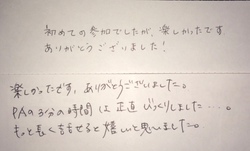 初めての参加でしたが、楽しかったです
ありがとうございました!
楽しかったです。ありがとうございました。
PAの3分の時間は正直びっくりしました...。
もっと長く話せると嬉しいと思いました。